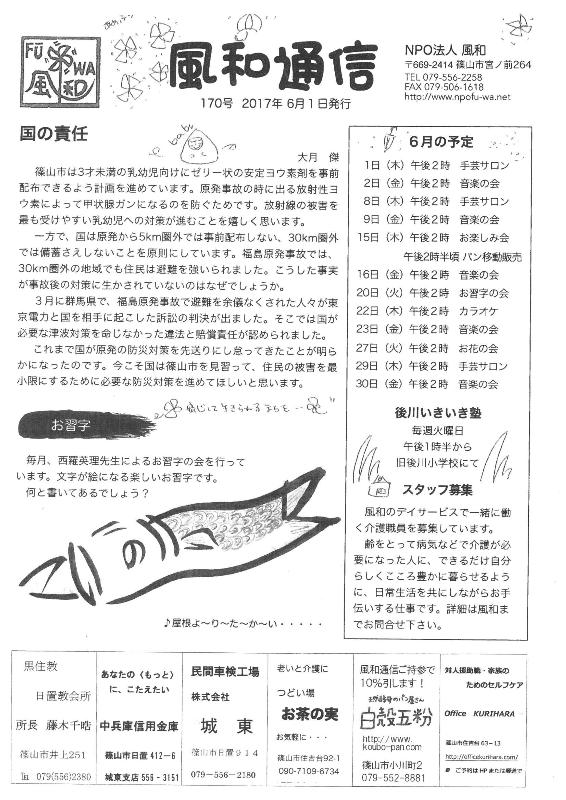 FŪ WA
風和
風和通信
170号 2017年6月1日発行
NPO法人 風和
〒669-2414 篠山市宮ノ前264
TEL 079-556-2258
FAX 079-506-1618
http://www.npofu-wa.net
国の責任
baby
大月 傑
篠山市は3才未満の乳幼児向けにゼリー状の安定ヨウ素剤を事前
配布できるよう計画を進めています。原発事故の時に出る放射性ヨ
ウ素によって甲状腺ガンになるのを防ぐためです。放射線の被害を
最も受けやすい乳幼児への対策が進むことを嬉しく思います。
一方で、国は原発から5km圏外では事前配布しない、30km圏外
では備蓄さえしないことを原則にしています。福島原発事故では、
30km圏外の地域でも住民は避難を強いられました。こうした事実
が事故後の対策に生かされていないのはなぜでしょうか。
3月に群馬県で、福島原発事故で避難を余儀なくされた人々が東
京電力と国を相手に起こした訴訟の判決が出ました。そこでは国が
必要な津波対策を命じなかった違法と賠償責任が認められました。
これまで国が原発の防災対策を先送りにし怠ってきたことが明ら
かになったのです。今こそ国は篠山市を見習って、住民の被害を最
小限にするために必要な防災対策を進めてほしいと思います。
お習字
毎月、西羅英理先生によるお習字の会を行って
います。文字が絵になる楽しいお習字です。
何と書いてあるでしょう？
♪屋根よ〜り〜た〜か〜い・・・・・
6月の予定
1日（木）午後2時 手芸サロン
2日（金）午後2時 音楽の会
8日（木）午後2時 手芸サロン
9日（金）午後2時 音楽の会
15日（木）午後2時 お楽しみ会
午後2時半頃 パン移動販売
16日（金）午後2時 音楽の会
20日（火）午後2時 お習字の会
22日（木）午後2時 カラオケ
23日（金）午後2時 音楽の会
27日（火）午後2時 お花の会
29日（木）午後2時 手芸サロン
30日（金）午後2時 音楽の会
後川いきいき塾
毎週火曜日
午後1時半から
旧後川小学校にて
スタッフ募集
風和のデイサービスで一緒に働
く介護職員を募集しています。
齢をとって病気などで介護が必
要になった人に、できるだけ自分
らしくこころ豊かに暮らせるよう
に、日常生活を共にしながらお手
伝いする仕事です。詳細は風和ま
でお問合せ下さい。
黒住教
日置教会所
所長 藤木千晧
篠山市井上251
℡ 079(556)2380
あなたの〈もっと〉
に、こたえたい
中兵庫信用金庫
篠山市日置412－6
城東支店 556－3151
民間車検工場
株式会社
城東
篠山市日置914
079－556－2180
老いと介護に
つどい場
お茶の実
お気軽に・・・
篠山市住吉台92-1
090-7109-6734
風和通信ご持参で
10％引します！
天然酵母のパン屋さん
白殻五粉
http://www.
koubo-pan.com
篠山市小川町2
079-552-8881
対人援助職・家族の
ためのセルフケア
Office KURIHARA
篠山市住吉台63－13
http://officekurihara.com/
※ ご予約はHPまたは郵送で